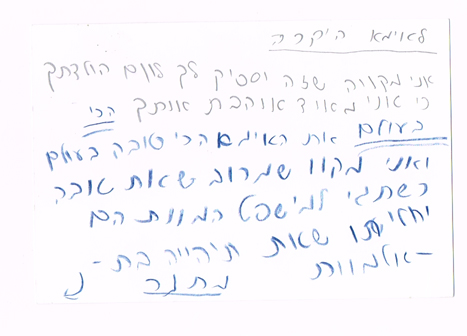 לאוימא היקרה
אני מקווה שזה יספיק לך ליום הולדתך
כי אני מאוד אוהבת אותך הכי
בעולם את האימא הכי טובה בעולם
ואני מקוו שמרוב שאת טובה
כשתגי למישפט המוות הם
יחליטו שאת תיהייה בת-
-אלמוות